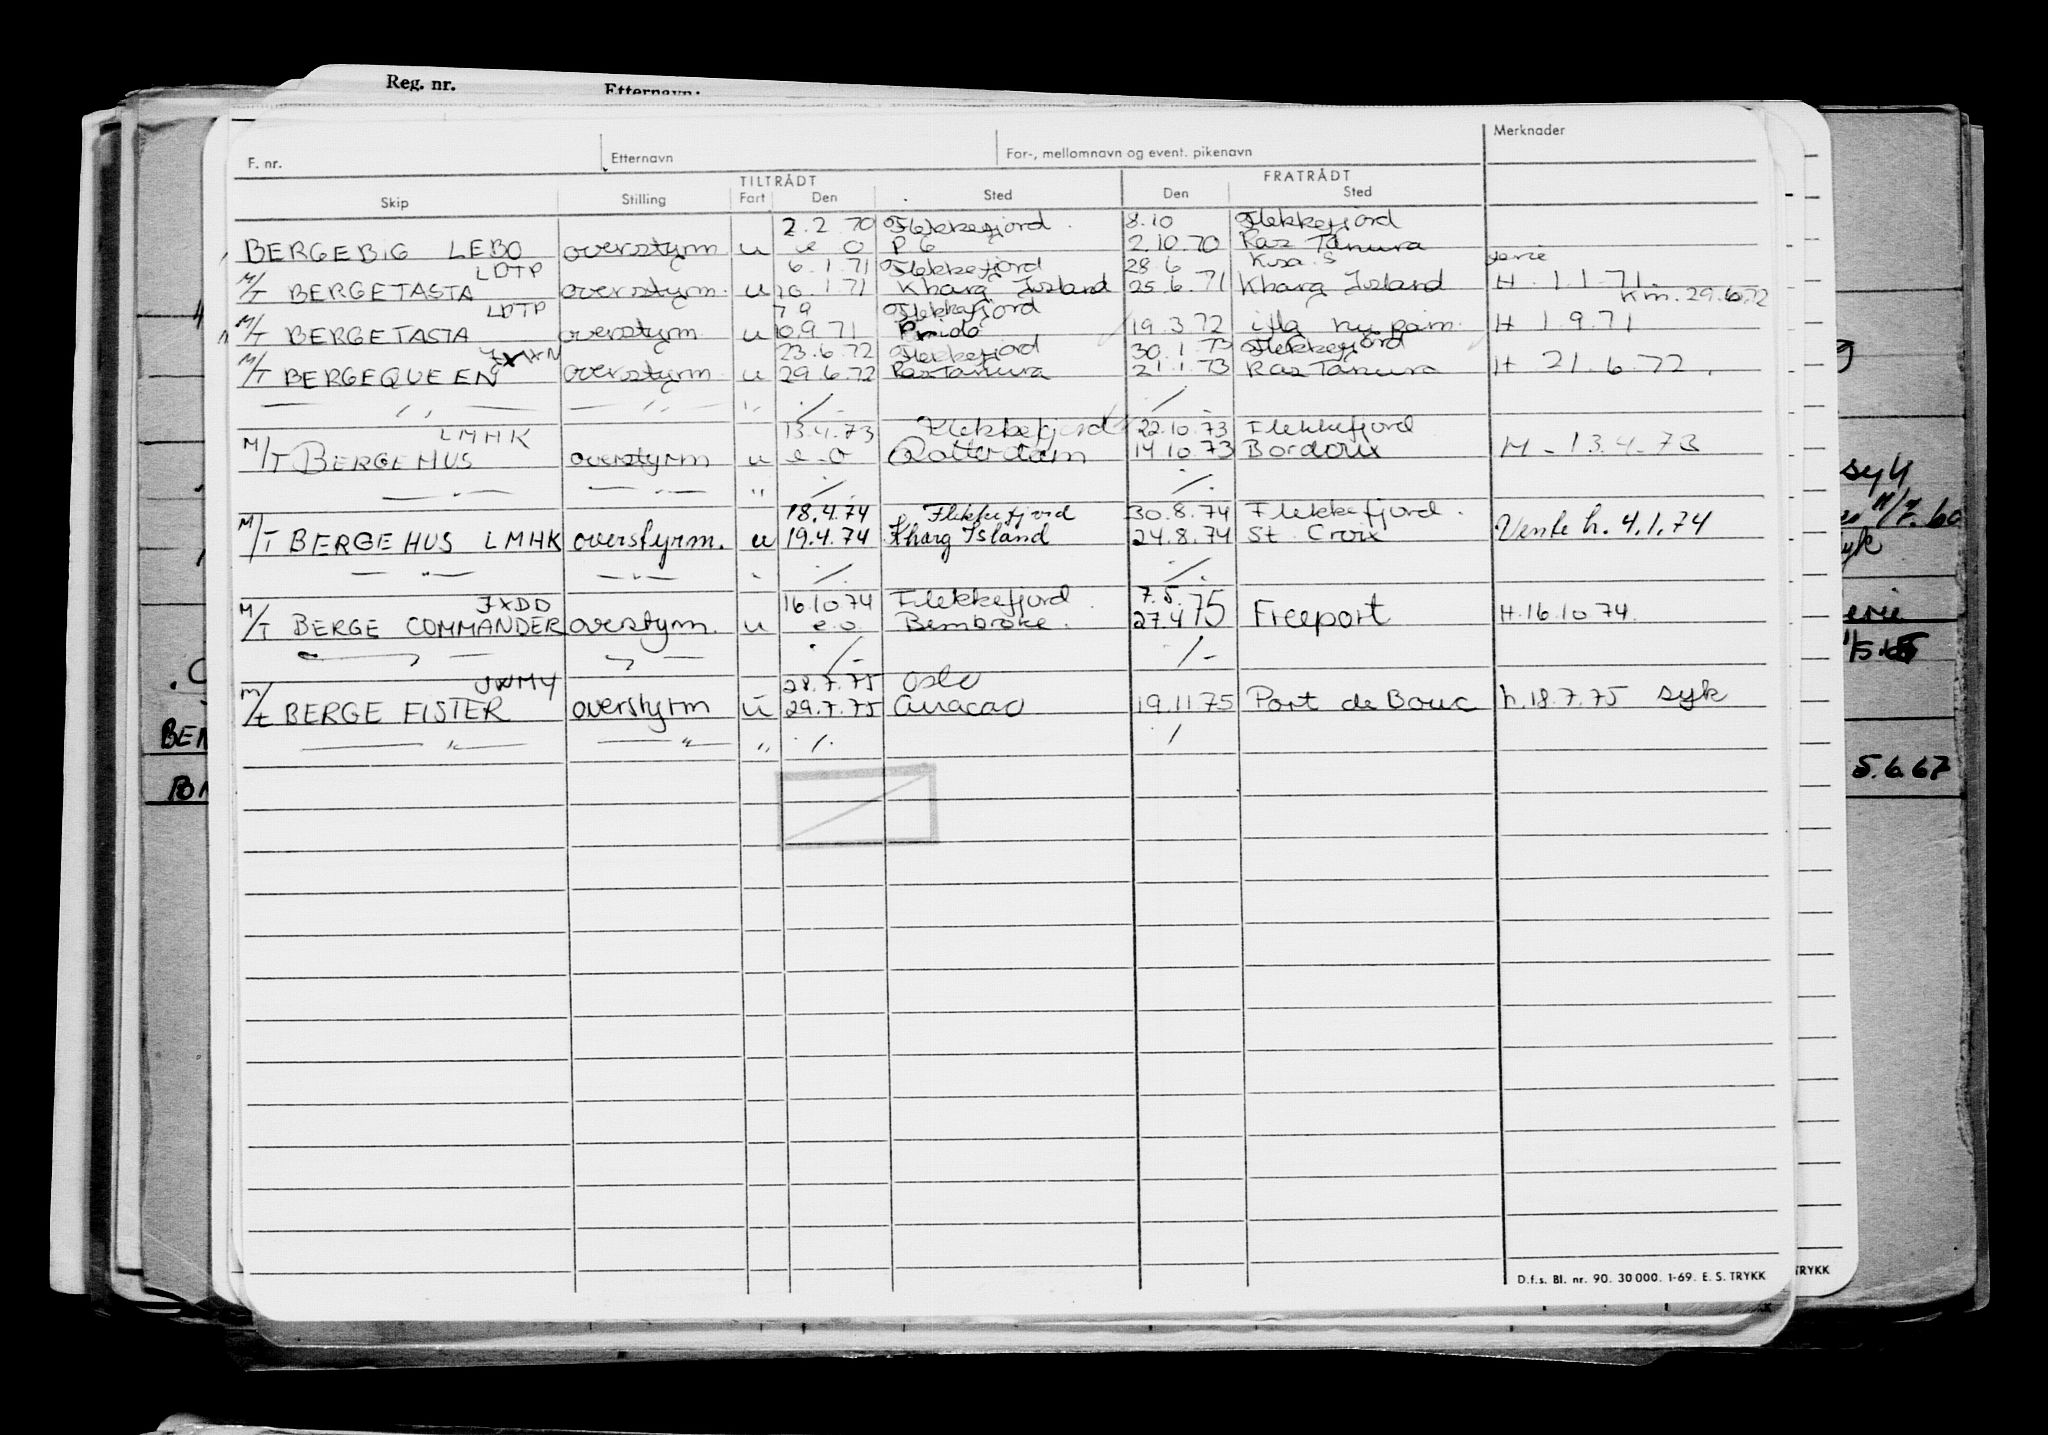 Reg. nr. Etternavn:
F. nr. Etternavn For-, mellomnavn og event. pikenavn Merknader
TILTRÅDT FRATRÅDT
Skip Stilling Fart Den Sted Den Sted
2.2.70 Flekkefjord. 8.10 Flekkefjord
BERGEBIG LEBO overstyrm u e o P G 2.10.70 Ras Tanura
LDTP 6.1.71 Flekkefjord 28.6 ferie
M/T BERGETASTA overstyrm. u 10.1.71 Kharg Island 25.6.71 Kharg Island H 1.1.71.
LDTP 7 9 Flekkefjord Km. 29.6.72
M/T BERGETASTA overstyrm u 10.9.71 19.3.72 H 1.9.71
23.6.72 Flekkefjord 30.1.73 Flekkefjord
M/T BERGEQUEEN overstyrm u 29.6.72 Ras Tanura 21.1.73 Ras Tanura H 21.6.72.
— " — — " — " ./. ./.
LMHK 13.4.73 Flekkefjord 22.10.73 Flekkefjord
M/T BERGEHUS overstyrm u e o Rotterdam 14.10.73 Bordoux M - 13.4.73
— " — — " — " ./. ./.
18.4.74 Flekkefjord 30.8.74 Flekkefjord.
M/T BERGEHUS LMHK overstyrm. u 19.4.74 Kharg Island 24.8.74 St. Croix Vente h. 4.1.74
— " — — " — " ./. ./.
JXDD 16.10 74 Flekkefjord. 7.5.
M/T BERGE COMMANDER overstyrm. u e.o. Bembroke. 27.4 75 Freeport H.16.10 74.
— " — " — ./- ./-
JWMY 28.7.75 Oslo
M/T BERGE FISTER overstyrm u 29.7.75 Curacao 19.11 75 Port de Bouc h.18.7.75 syk
— " — — " — " ./. /
syk
5.6.67
D.f.s. Bl. nr. 90. 30 000. 1-69. E. S. TRYKK
TRYKK